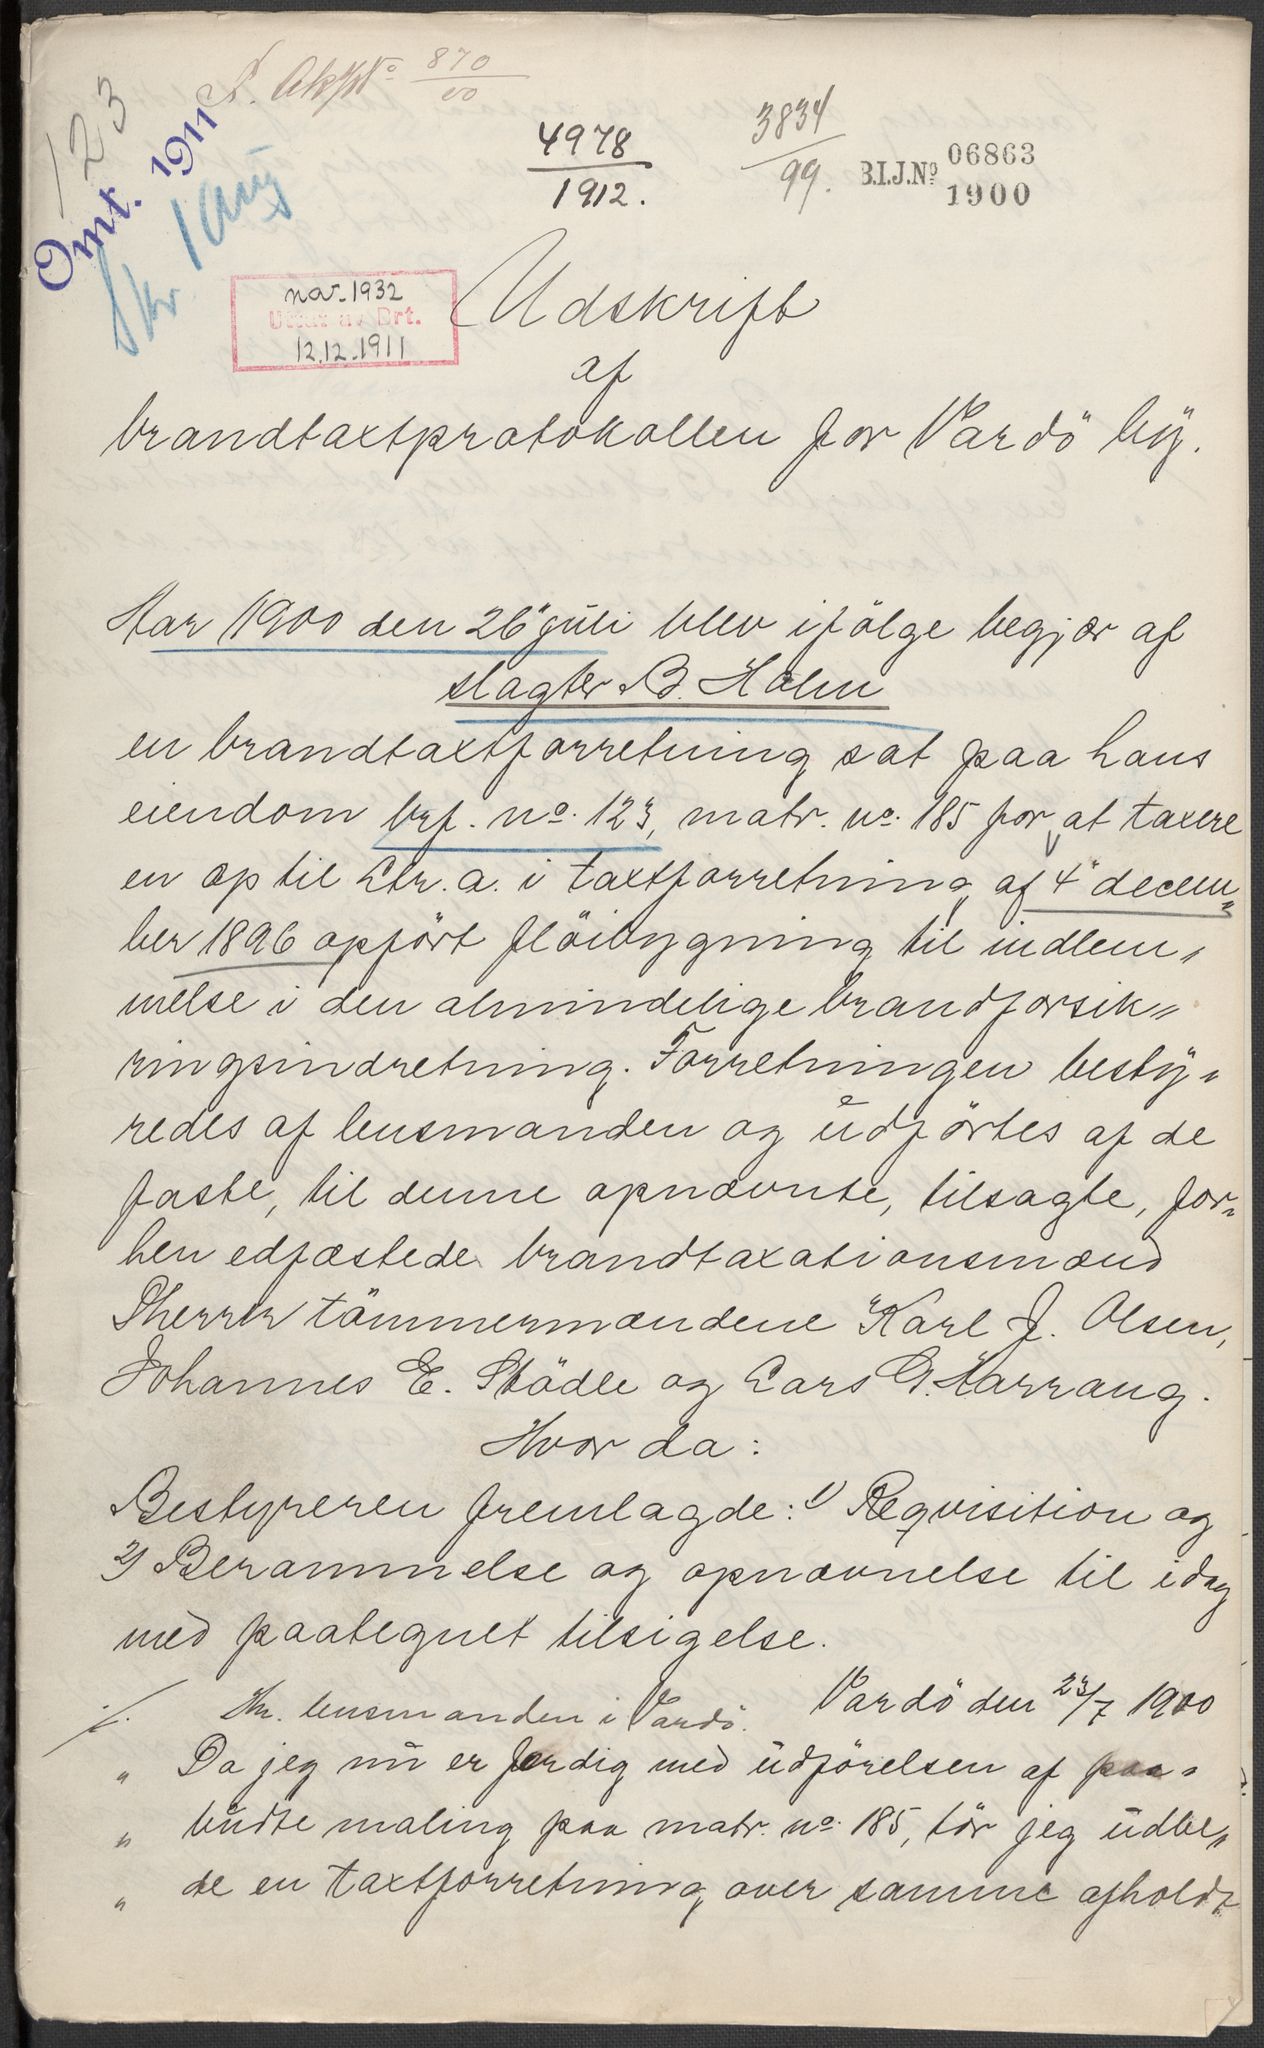 123
Omt. 1911
Skr 1 aug
870
00
4978
1912.
3834
99.
B.I.J.Nº 06863
1900
nov. 1932
Uttat av Brt.
12.12.1911
Udskrift
af
brandtaxtprotokollen for Vardö bÿ.
Aar 1900 den 26 juli blev ifölge begjær af
slagter B. Holm
en brandtaxtforretning sat paa hans
eiendom brf. nº. 123, matr. nº. 185 for at taxere
en op til Ltr. a. i taxtforretning af 4 decem„
ber 1896 opfört flöibygning til indlem„
melse i den almindelige brandforsik„
ringsindretning. Forretningen bestÿ„
redes af lensmanden og udförtes af de
faste, til denne opnævnte, tilsagte, for„
hen edfæstede brandtaxationsmænd
Sherrer tömmermændene Karl J. Olsen,
Johannes E. Stödle og Lars G. Harrang.
Hvor da:
Bestyreren fremlagde: 1) Reqvisition og
2) Berammelse og opnævnelse til idag
med paategnet tilsigelse.
Vardö den 23/7 1900
./. Hr. lensmanden i Vardö.
„ Da jeg nu er færdig med udförelsen af paa„
„ budte maling paa matr. nº. 185, tör jeg udbe„
„ de en taxtforretning over samme afholdt